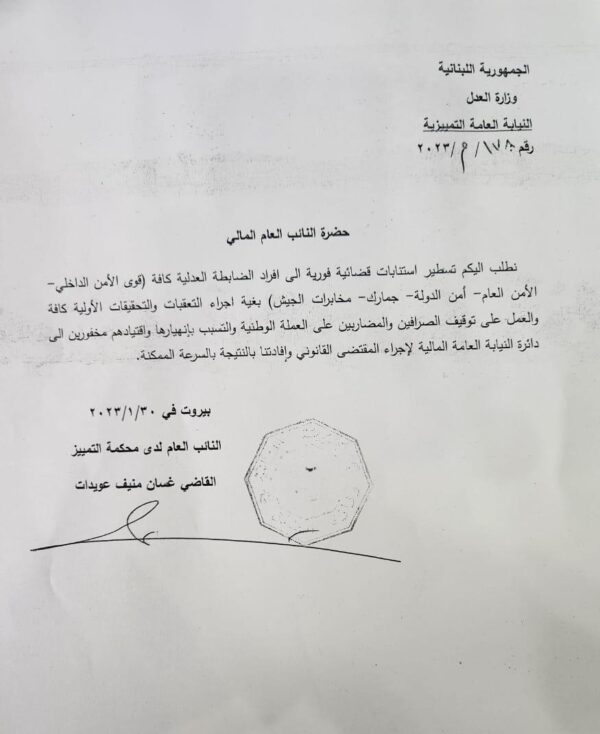 الجمهورية اللبنانية
وزارة العدل
النيابة العامة التمييزية
رقم ١٧٨/م/٢٠٢٣
حضرة النائب العام المالي
نطلب اليكم تسطير استنابات قضائية فورية الى افراد الضابطة العدلية كافة (قوى الأمن الداخلي-
الأمن العام- أمن الدولة- جمارك- مخابرات الجيش) بغية اجراء التعقبات والتحقيقات الأولية كافة
والعمل على توقيف الصرافين والمضاربين على العملة الوطنية والتسبب بإنهيارها واقتيادهم مخفورين الى
دائرة النيابة العامة المالية لإجراء المقتضى القانوني وإفادتنا بالنتيجة بالسرعة الممكنة.
بيروت في ٢٠٢٣/١/٣٠
النائب العام لدى محكمة التمييز
القاضي غسان منيف عويدات